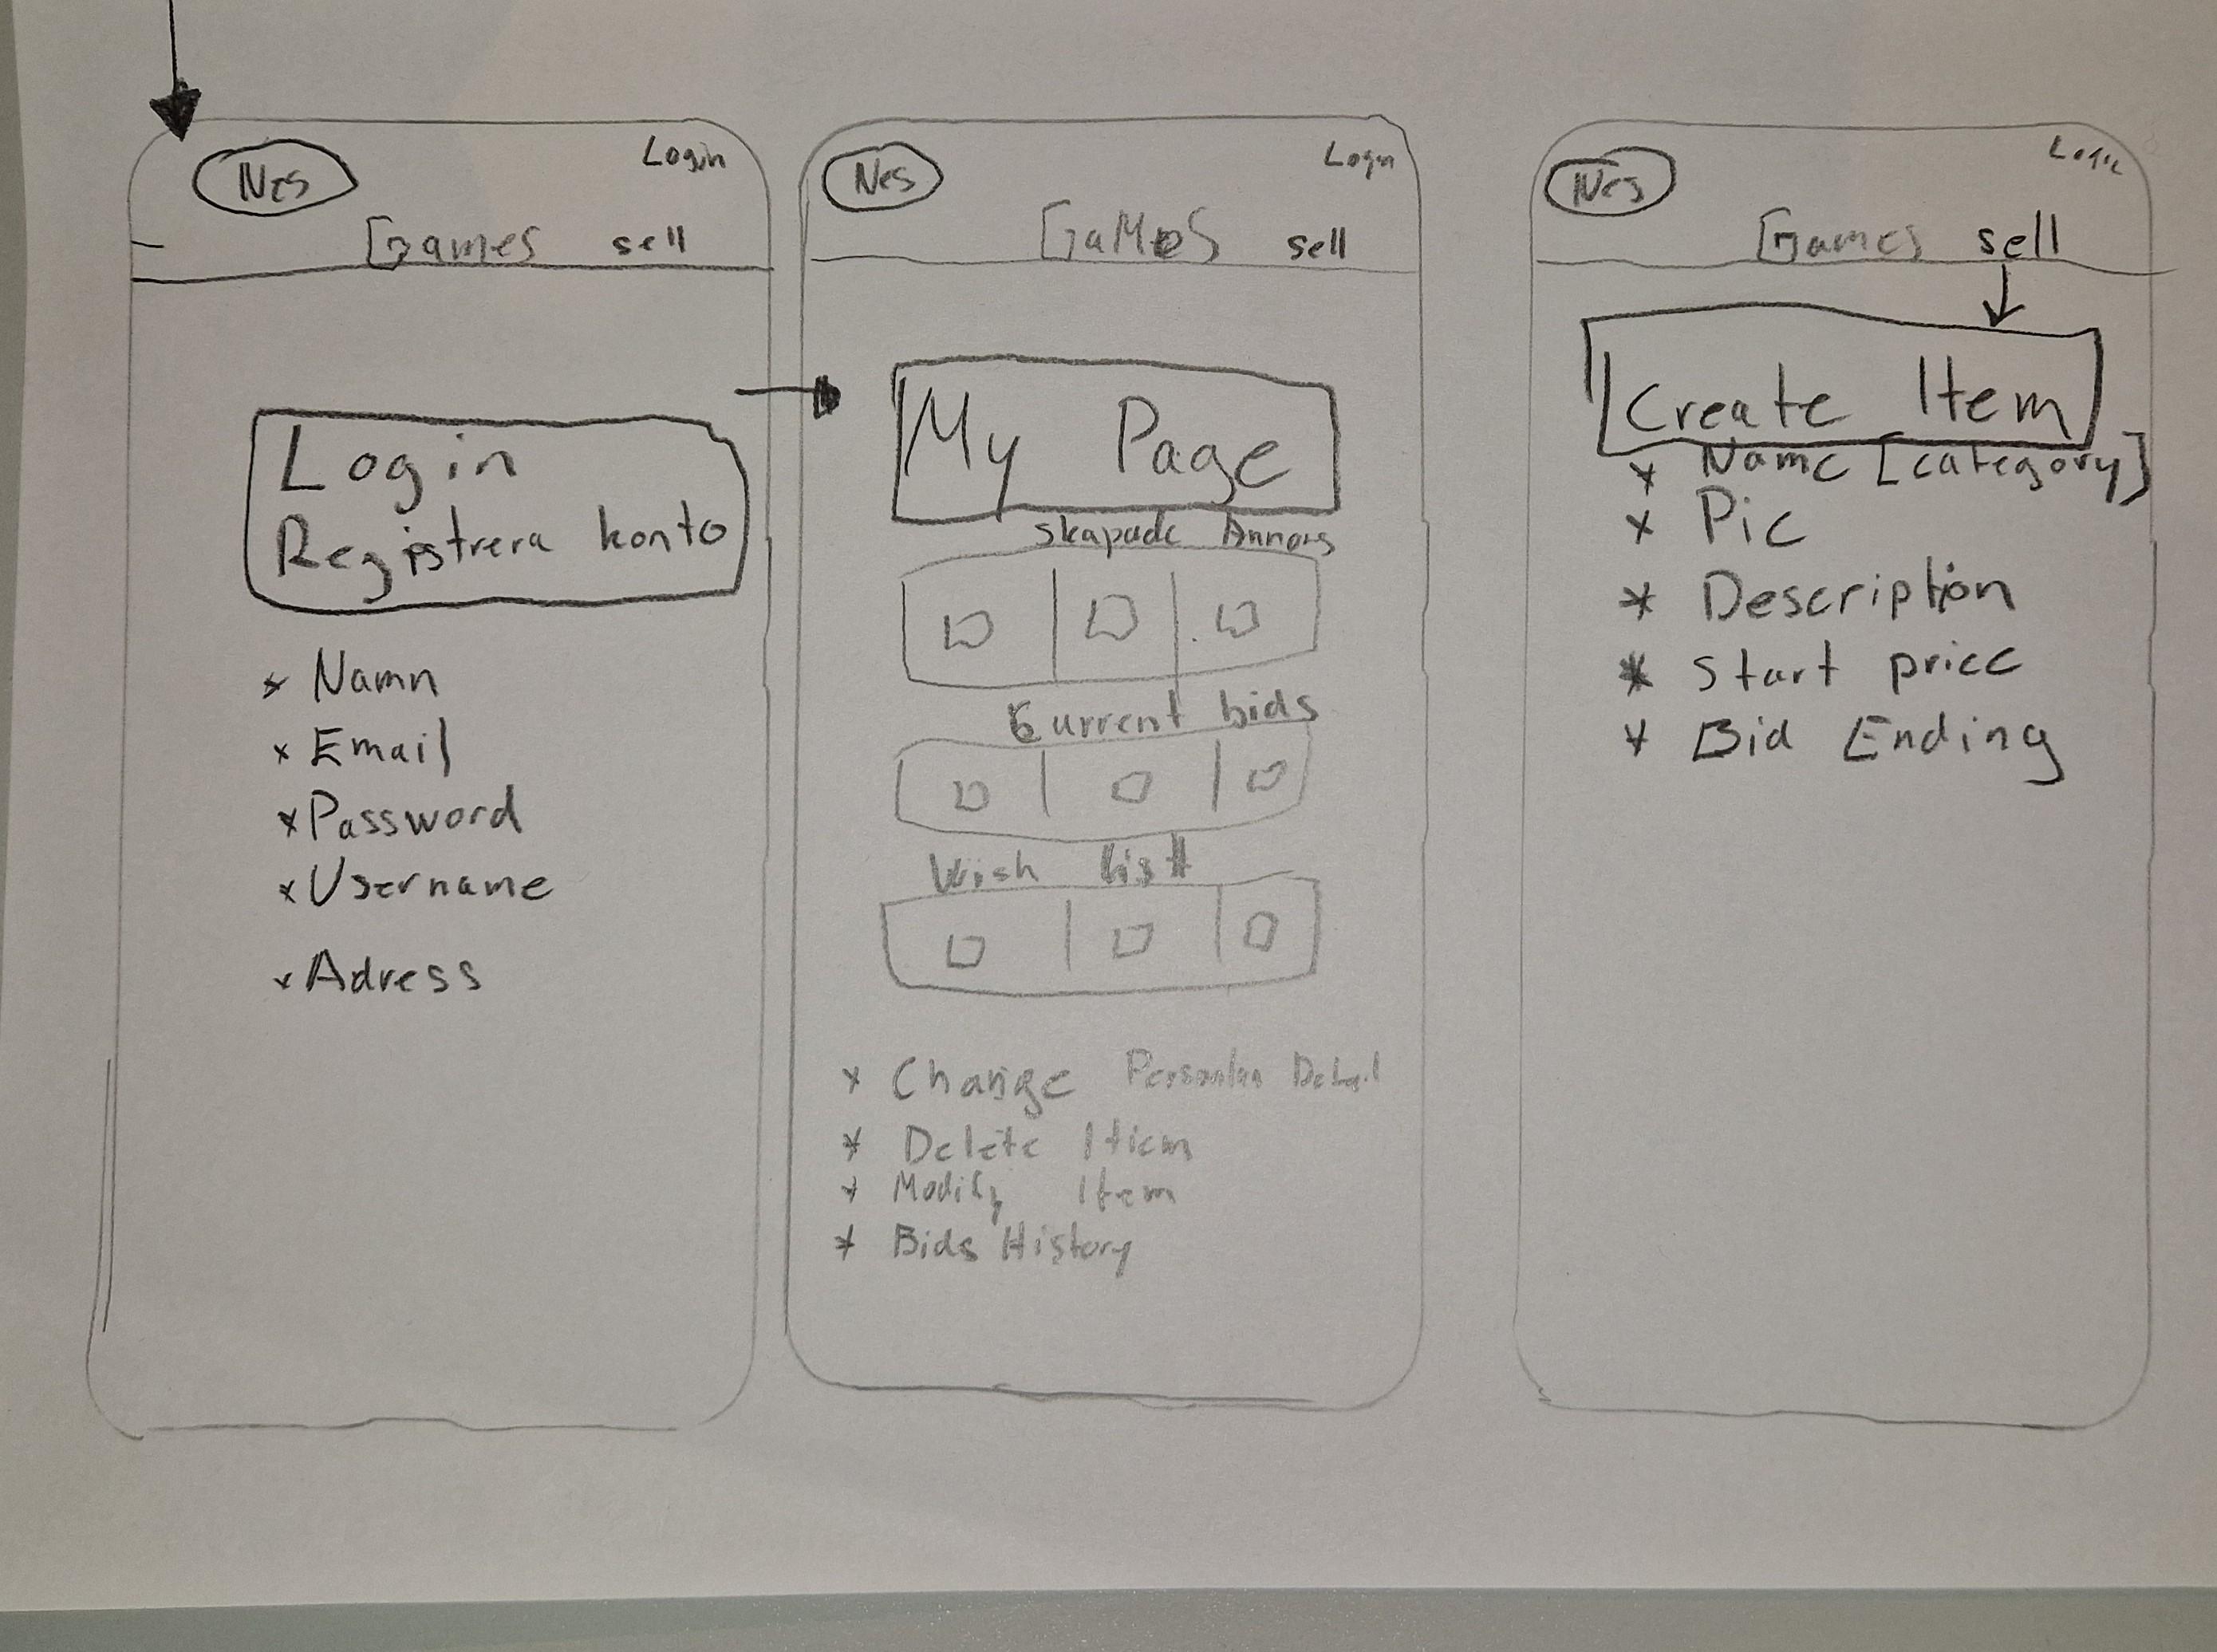 Nes
Login
Games sell
Login
Registrera konto
* Namn
* Email
* Password
* Username
* Adress
Nes
Login
GaMeS sell
My Page
skapade Annons
Current bids
Wish list
* Change Detail
* Delete Itiem
* Modify Item
* Bids History
Nes
Login
Games sell
Create Item
* Name [category]
* Pic
* Description
* Start price
* Bid Ending